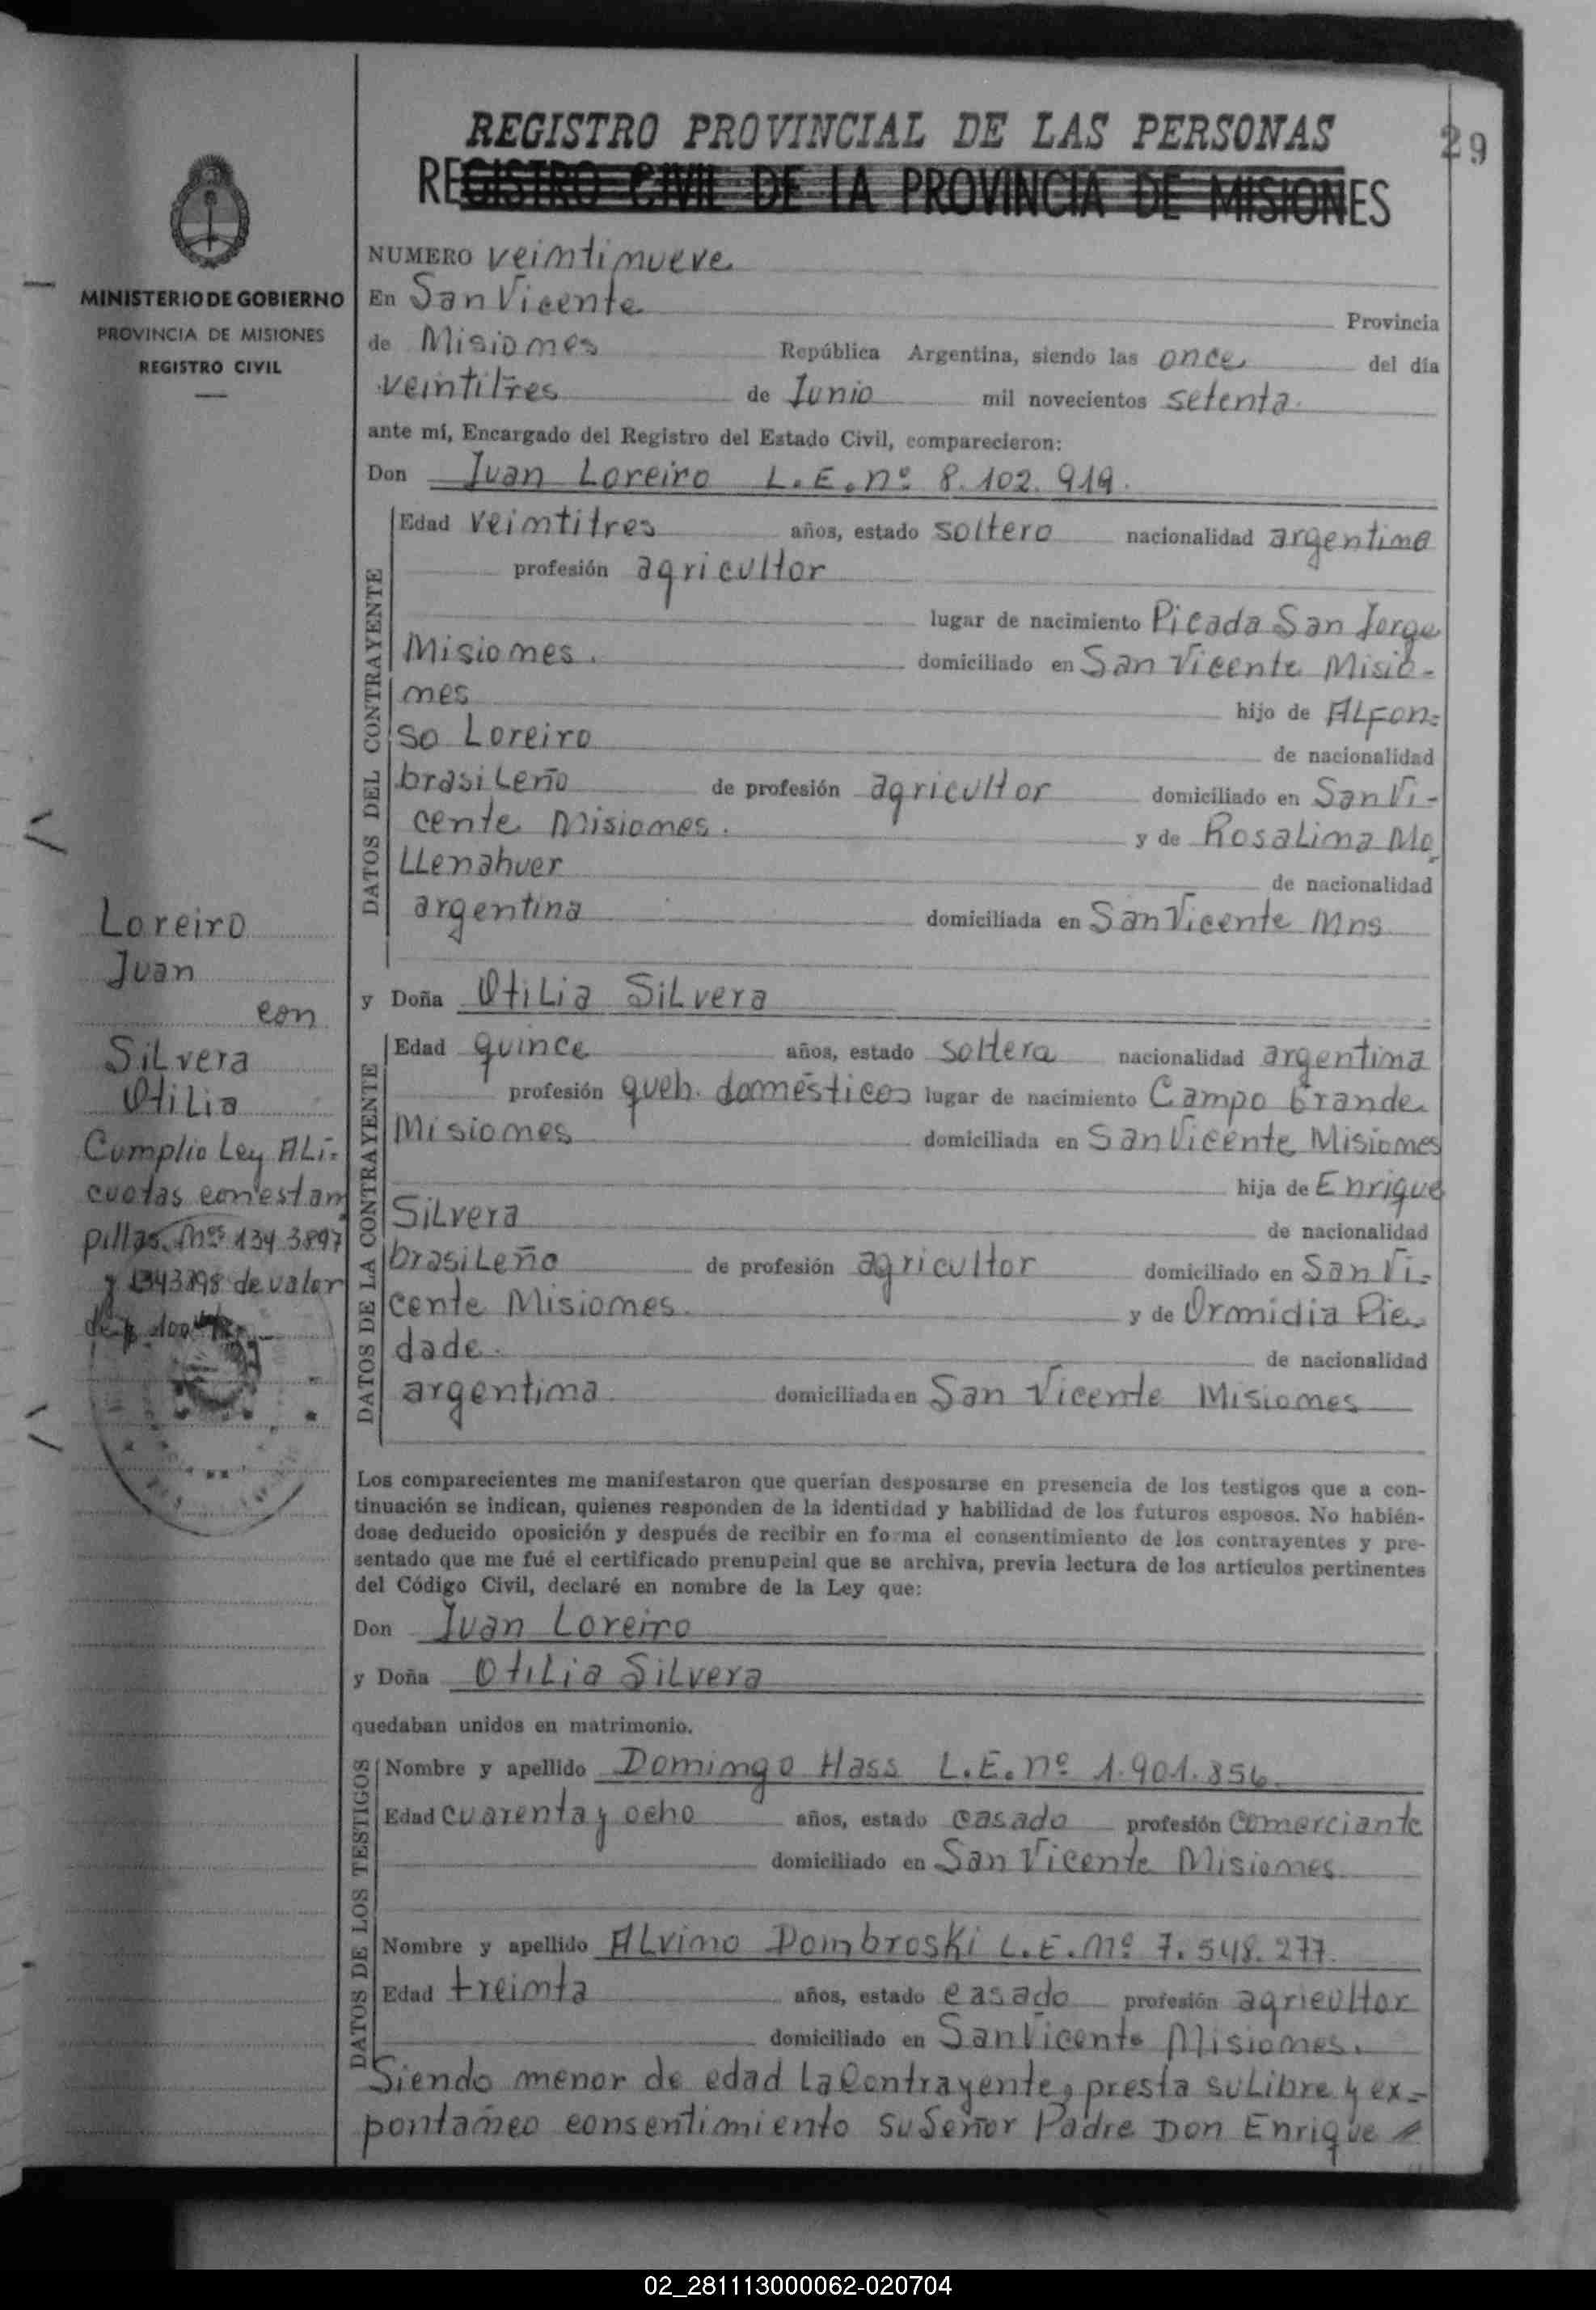 REGISTRO PROVINCIAL DE LAS PERSONAS
29
REGISTRO CIVIL DE LA PROVINCIA DE MISIONES
MINISTERIO DE GOBIERNO
PROVINCIA DE MISIONES
REGISTRO CIVIL
NUMERO veintinueve
En San Vicente Provincia
de Misiones República Argentina, siendo las once del día
veintitres de Junio mil novecientos setenta
ante mí, Encargado del Registro del Estado Civil, comparecieron:
Don Juan Loreiro L.E.nº 8.102.919.
DATOS DEL CONTRAYENTE
Edad veintitres años, estado soltero nacionalidad argentina
profesión agricultor
lugar de nacimiento Picada San Jorge
Misiones. domiciliado en San Vicente Misio-
nes hijo de ALfon=
so Loreiro de nacionalidad
brasileño de profesión agricultor domiciliado en San Vi-
cente Misiones. y de Rosalina Mo
LLenahuer de nacionalidad
argentina domiciliada en San Vicente Mns
y Doña Otilia Silvera
DATOS DE LA CONTRAYENTE
Edad quince años, estado soltera nacionalidad argentina
profesión queh. domésticos lugar de nacimiento Campo Grande
Misiones domiciliada en San Vicente Misiones
hija de Enrique
Silvera de nacionalidad
brasileño de profesión agricultor domiciliado en San Vi=
cente Misiones. y de Ormidia Pie
dade. de nacionalidad
argentina. domiciliada en San Vicente Misiones
Loreiro
Juan
con
Silvera
Otilia
Cumplio Ley ALi=
cuotas con estam
pillas. Nos 134 3897
y 1343898 de valor
de $ 100
Los comparecientes me manifestaron que querían desposarse en presencia de los testigos que a con-
tinuación se indican, quienes responden de la identidad y habilidad de los futuros esposos. No habién-
dose deducido oposición y después de recibir en forma el consentimiento de los contrayentes y pre-
sentado que me fué el certificado prenupcial que se archiva, previa lectura de los artículos pertinentes
del Código Civil, declaré en nombre de la Ley que:
Don Juan Loreiro
y Doña Otilia Silvera
quedaban unidos en matrimonio.
DATOS DE LOS TESTIGOS
Nombre y apellido Domingo Hass L.E.nº 1.901.856
Edad cuarenta y ocho años, estado casado profesión comerciante
domiciliado en San Vicente Misiones
Nombre y apellido ALvino Dombroski L.E.nº 7.548.277.
Edad treinta años, estado casado profesión agricultor
domiciliado en San Vicente Misiones.
Siendo menor de edad La Contrayente, presta su Libre y ex-
pontaneo consentimiento su Señor Padre Don Enrique
02_281113000062-020704